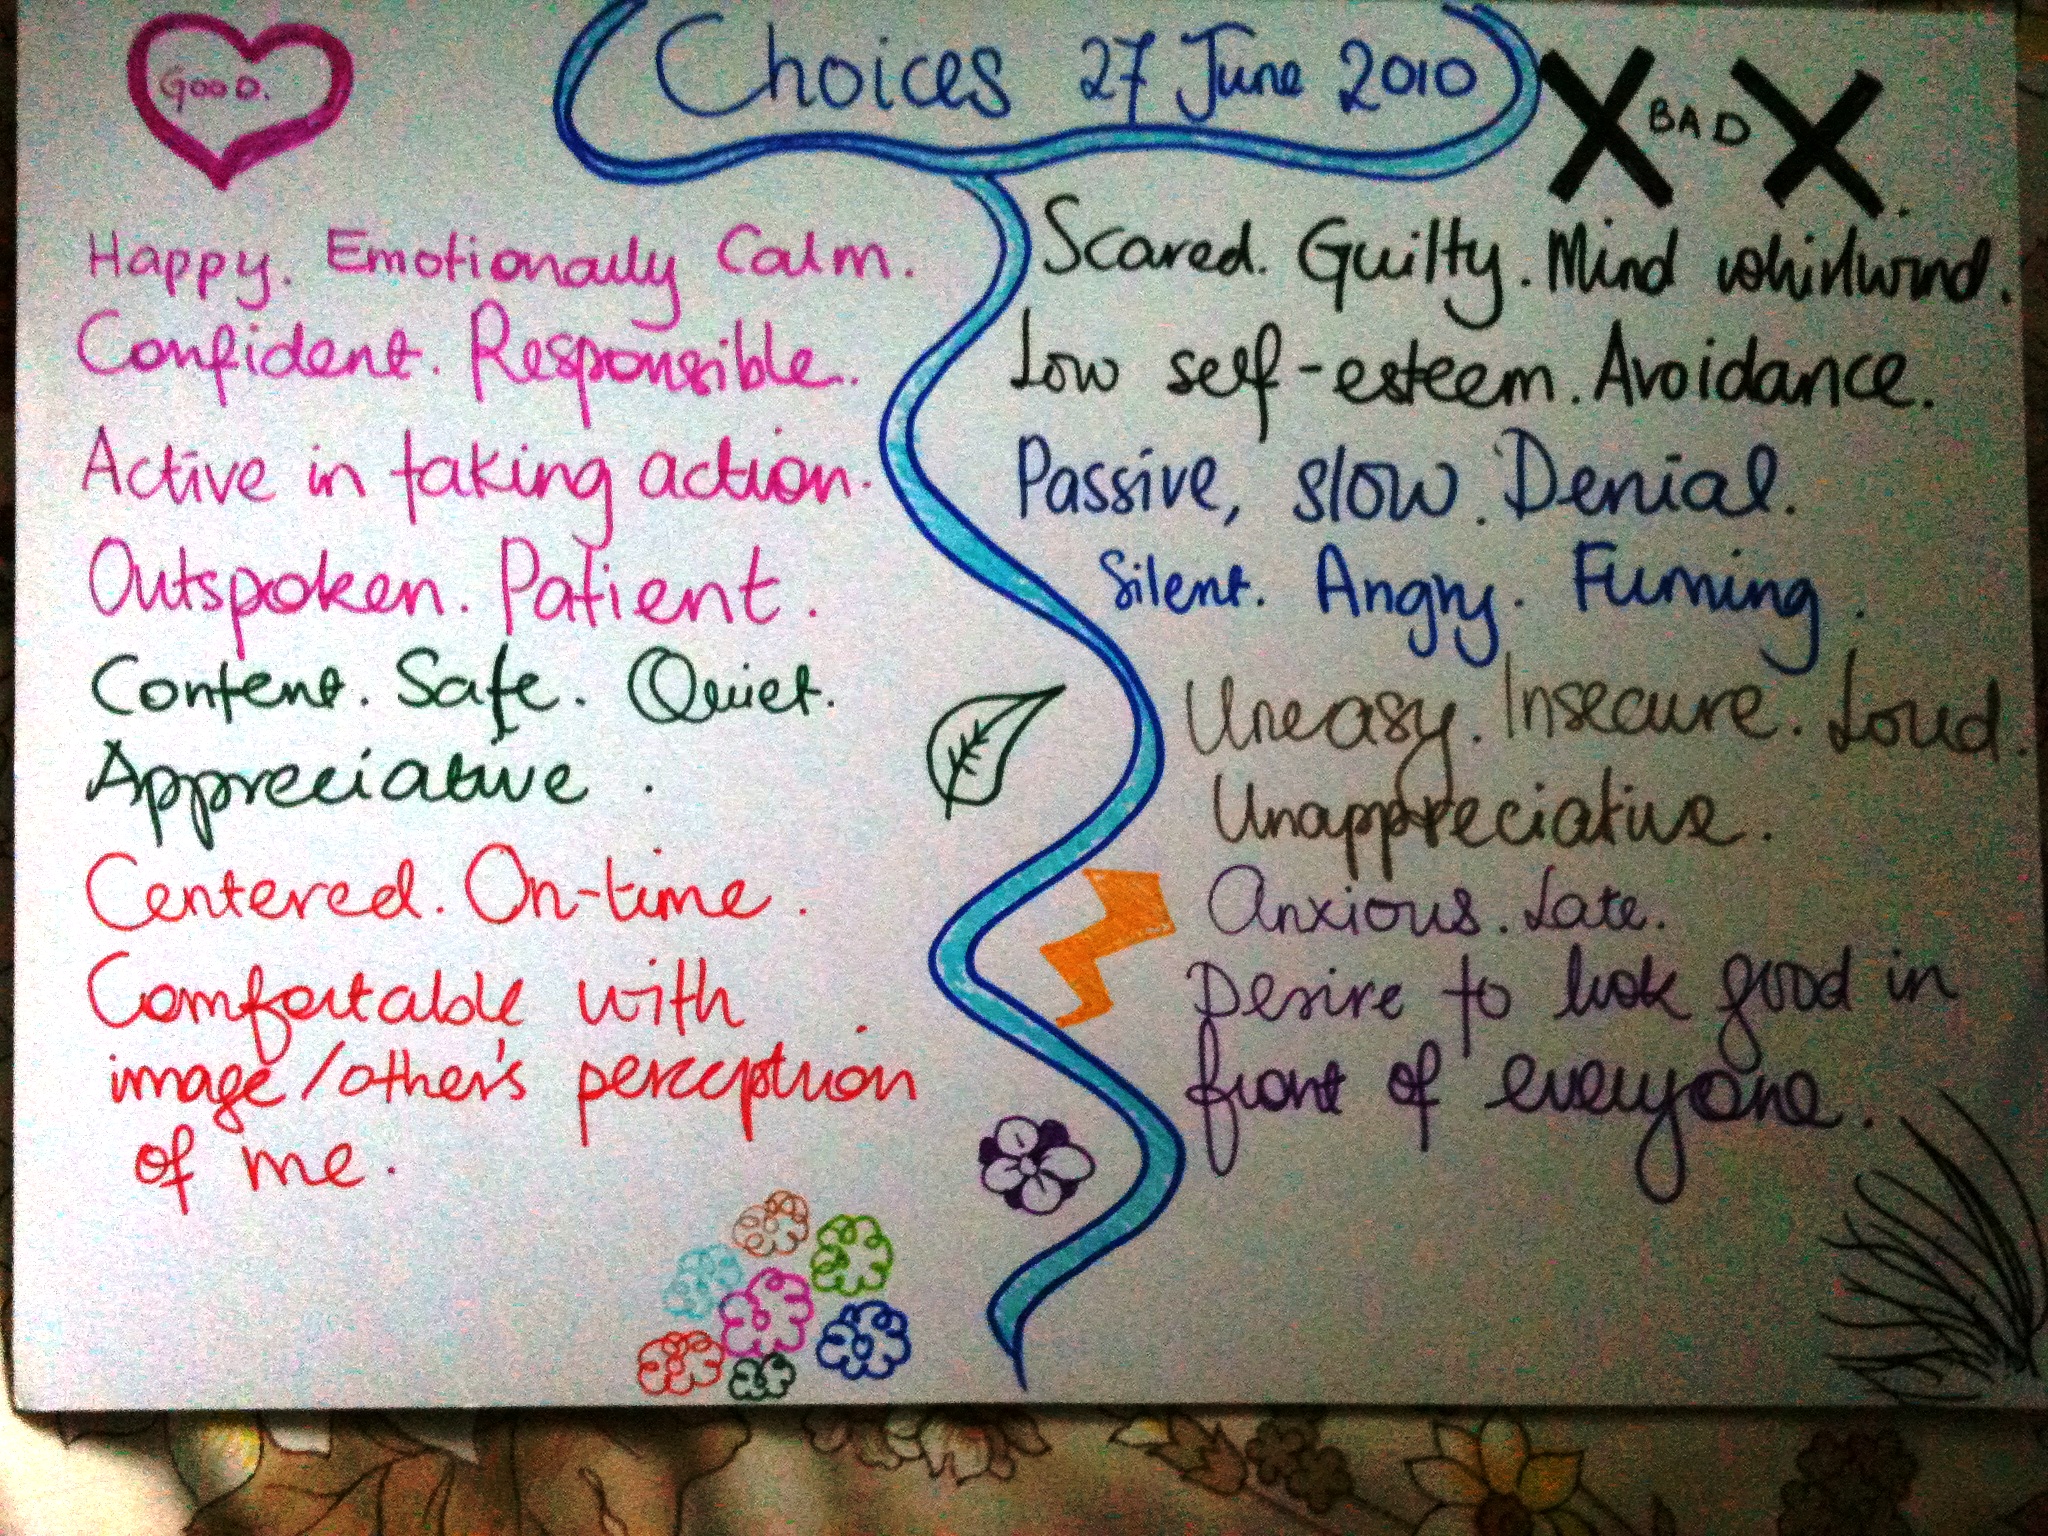 Choices 27 June 2010
GOOD.
Happy. Emotionally Calm.
Confident. Responsible.
Active in taking action.
Outspoken. Patient.
Content. Safe. Quiet.
Appreciative.
Centered. On-time.
Comfortable with
image/other's perception
of me.
BAD
Scared. Guilty. Mind whirlwind.
Low self-esteem. Avoidance.
Passive, slow. Denial.
Silent. Angry. Fuming.
Uneasy. Insecure. Loud.
Unappreciative.
Anxious. Late.
Desire to look good in
front of everyone.